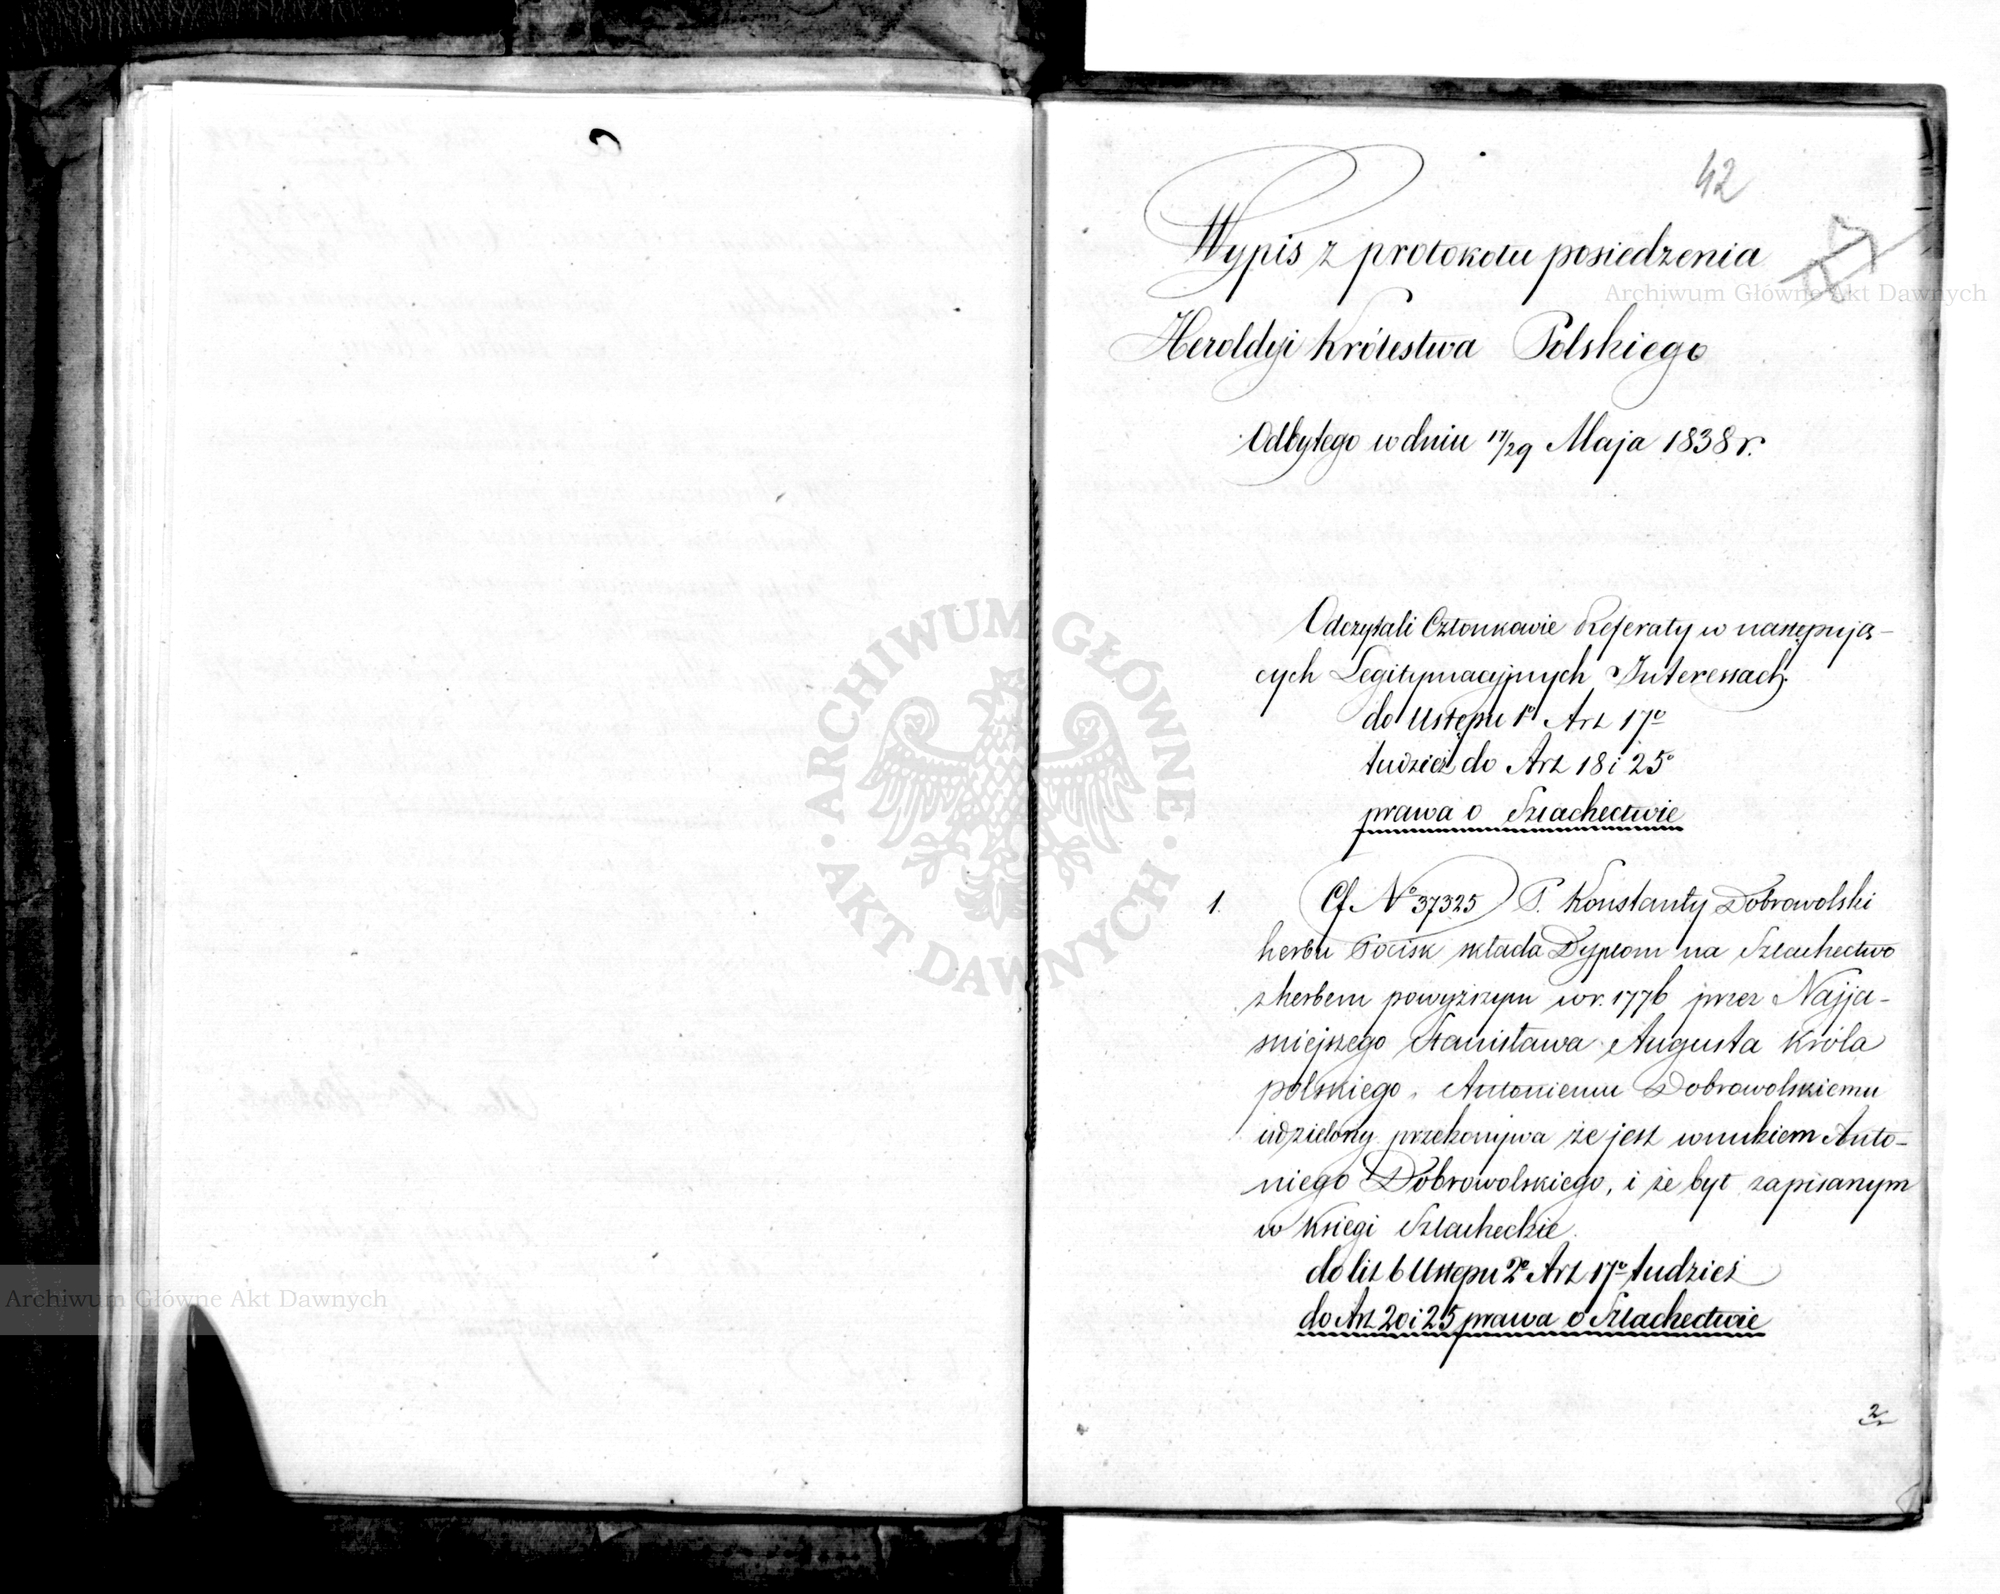 42
Wypis z protokołu posiedzenia
Heroldyi Królestwa Polskiego
Odbytego w dniu 17/29 Maja 1838 r.
Odczytali Członkowie Referaty w następują-
cych Legitymacyjnych Interessach.
do Ustępu 1º Art 17º
tudzież do Art 18 i 25º
prawa o Szlachectwie
1. Cf Nº 37325 P. Konstanty Dobrowolski
herbu Pocisk składa Dyplom na Szlachectwo
z herbem powyższym w r. 1776 przez Najja-
śniejszego Stanisława Augusta Króla
polskiego, Antoniemu Dobrowolskiemu
udzielony przekonywa że jest wnukiem Anto-
niego Dobrowolskiego, i że był zapisanym
w księgi Szlacheckie.
do lit b Ustępu 2º Art 17º tudzież
do Art 20 i 25 prawa o Szlachectwie
2
Archiwum Główne Akt Dawnych
Archiwum Główne Akt Dawnych
ARCHIWUM GŁÓWNE
· AKT DAWNYCH ·